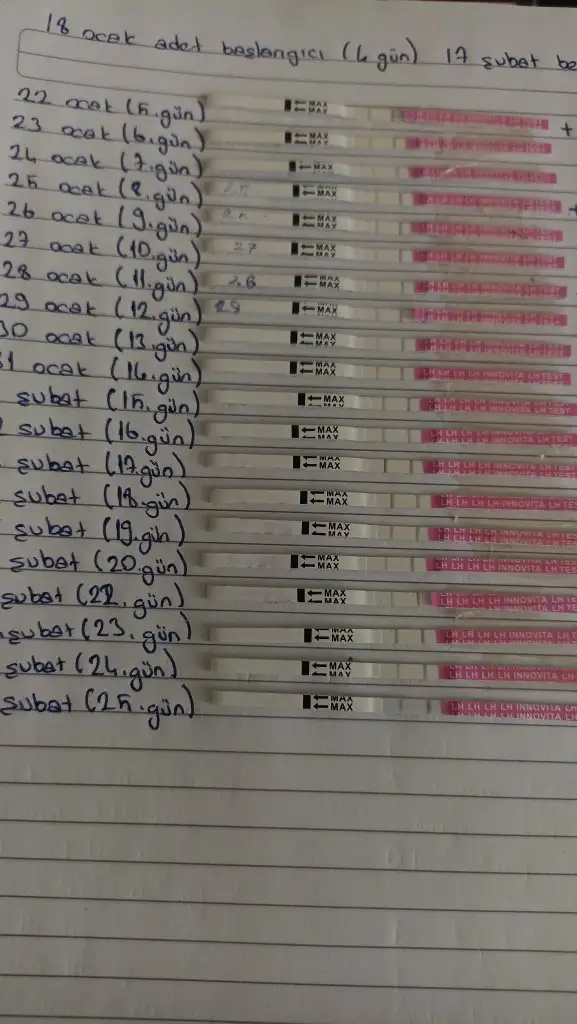 18 ocak adet başlangıcı (4 gün) 17 şubat be
22 ocak (5.gün) MAX MAX +
23 ocak (6.gün) MAX MAX
24 ocak (7.gün) MAX
25 ocak (8.gün) 25 MAX MAX +
26 ocak (9.gün) MAX MAX
27 ocak (10.gün) 27 MAX MAX
28 ocak (11.gün) 28 MAX MAX
29 ocak (12.gün) 29 MAX MAX
30 ocak (13.gün) MAX MAX
31 ocak (14.gün) MAX MAX LH LH LH LH INNOVITA LH TEST
şubat (15.gün) MAX MAX LH LH LH LH INNOVITA LH TEST
2 şubat (16.gün) MAX MAX LH LH LH LH INNOVITA LH TEST
şubat (17.gün) MAX MAX LH LH LH LH INNOVITA LH TEST
şubat (18.gün) MAX MAX LH LH LH LH INNOVITA LH TES
şubat (19.gün) MAX MAX LH LH LH LH INNOVITA LH TES
şubat (20.gün) MAX MAX LH LH LH LH INNOVITA LH TES
şubat (22.gün) MAX MAX LH LH LH LH INNOVITA LH TE
şubat (23.gün) MAX MAX LH LH LH LH INNOVITA LH T
şubat (24.gün) MAX MAX LH LH LH LH INNOVITA LH
şubat (25.gün) MAX MAX LH LH LH LH INNOVITA LH